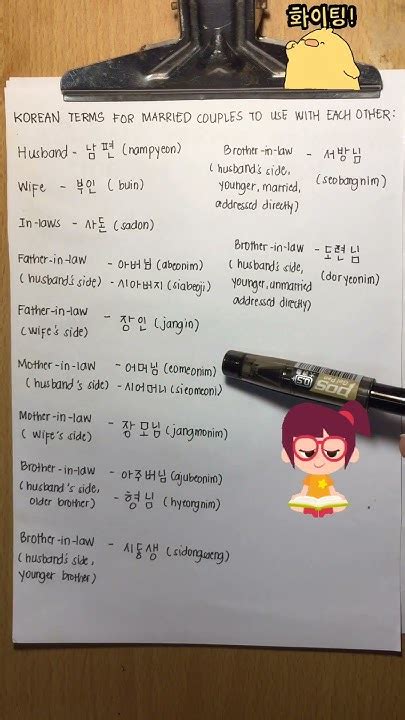 화이팅!
KOREAN TERMS FOR MARRIED COUPLES TO USE WITH EACH OTHER:
Husband - 남편 (nampyeon)
Wife - 부인 (buin)
In-laws - 사돈 (sadon)
Father-in-law - 아버님 (abeonim)
(husband's side) - 시아버지 (siabeoji)
Father-in-law - 장인 (jangin)
(wife's side)
Mother-in-law - 어머님 (eomeonim)
(husband's side) - 시어머니 (sieomeoni)
Mother-in-law - 장모님 (jangmonim)
(wife's side)
Brother-in-law - 아주버님 (ajubeonim)
(husband's side,
older brother) - 형님 (hyeongnim)
Brother-in-law - 시동생 (sidongsaeng)
(husband's side,
younger brother)
Brother-in-law - 서방님
(husband's side,
younger, married, (seobangnim)
addressed directly)
Brother-in-law - 도련님
(husband's side,
younger, unmarried (doryeonim)
addressed directly)